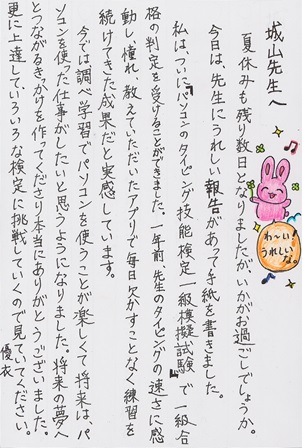 城山先生へ
夏休みも残り数日となりましたが、いかがお過ごしでしょうか。
今日は、先生にうれしい報告があって手紙を書きました。
私はついに『パソコンのタイピング技能検定一級模擬試験』で一級合
格の判定を受けることができました。一年前、先生のタイピングの速さに感
動し、憧れ、教えていただいたアプリで毎日欠かすことなく練習を
続けてきた成果だと実感しています。
今では調べ学習でパソコンを使うことが楽しくて、将来はパ
ソコンを使った仕事がしたいと思うようになりました。将来の夢へ
とつながるきっかけを作ってくださり本当にありがとうございました。
更に上達していろいろな検定に挑戦していくので見ていてください。
優衣
わ〜い!
うれしい
な。